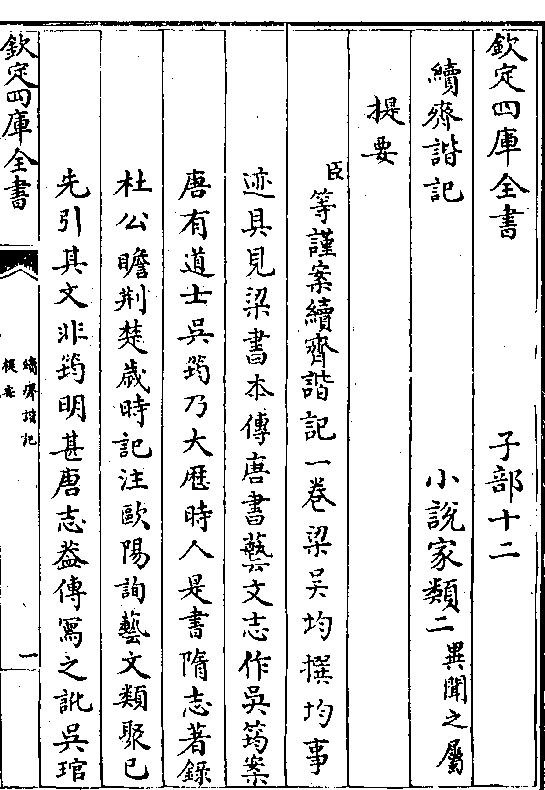 欽定四庫全書　子部十二
續齊諧記　小說家類二異聞之屬
提要
臣等謹案續齊諧記一卷梁吳均撰均事
迹具見梁書本傳唐書藝文志作吳筠案
唐有道士吳筠乃大厯時人是書隋志著錄
杜公瞻荆楚歲時記注歐陽詢藝文類聚已
先引其文非筠明甚唐志葢傳寫之訛吳琯
欽定四庫全書
續齊諧記
提要
一